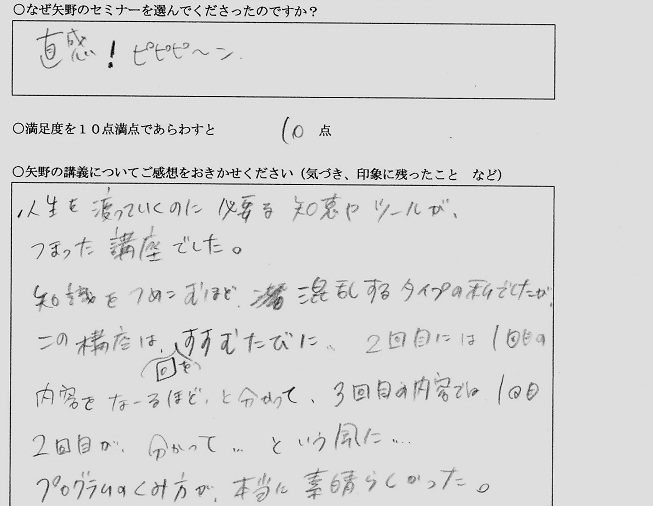 ○なぜ矢野のセミナーを選んでくださったのですか？
直感！ピピピ〜ン
○満足度を１０点満点であらわすと 10 点
○矢野の講義についてご感想をおきかせください（気づき、印象に残ったこと　など）
人生を渡っていくのに必要な知恵やツールが、
つまった講座でした。
知識をつめこむほど、混乱するタイプの私でしたが、
この構座は、回をすすむたびに、2回目には1回目の
内容をなーるほど、と分かって、3回目の内容では1回目
2回目が、分かって…という風に…
プログラムのくみ方が、本当に素晴らしかった。